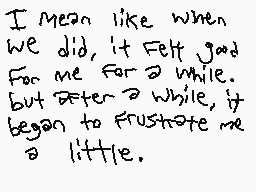 I mean like when
we did, it felt good
for me for a while.
but after a while, it
began to frustrate me
a little.